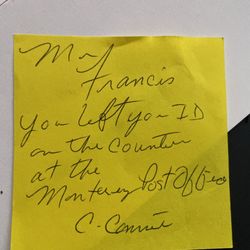 Mr
Francis
You left you ID
on the counter
at the
Monterey Post Office
C. Connie